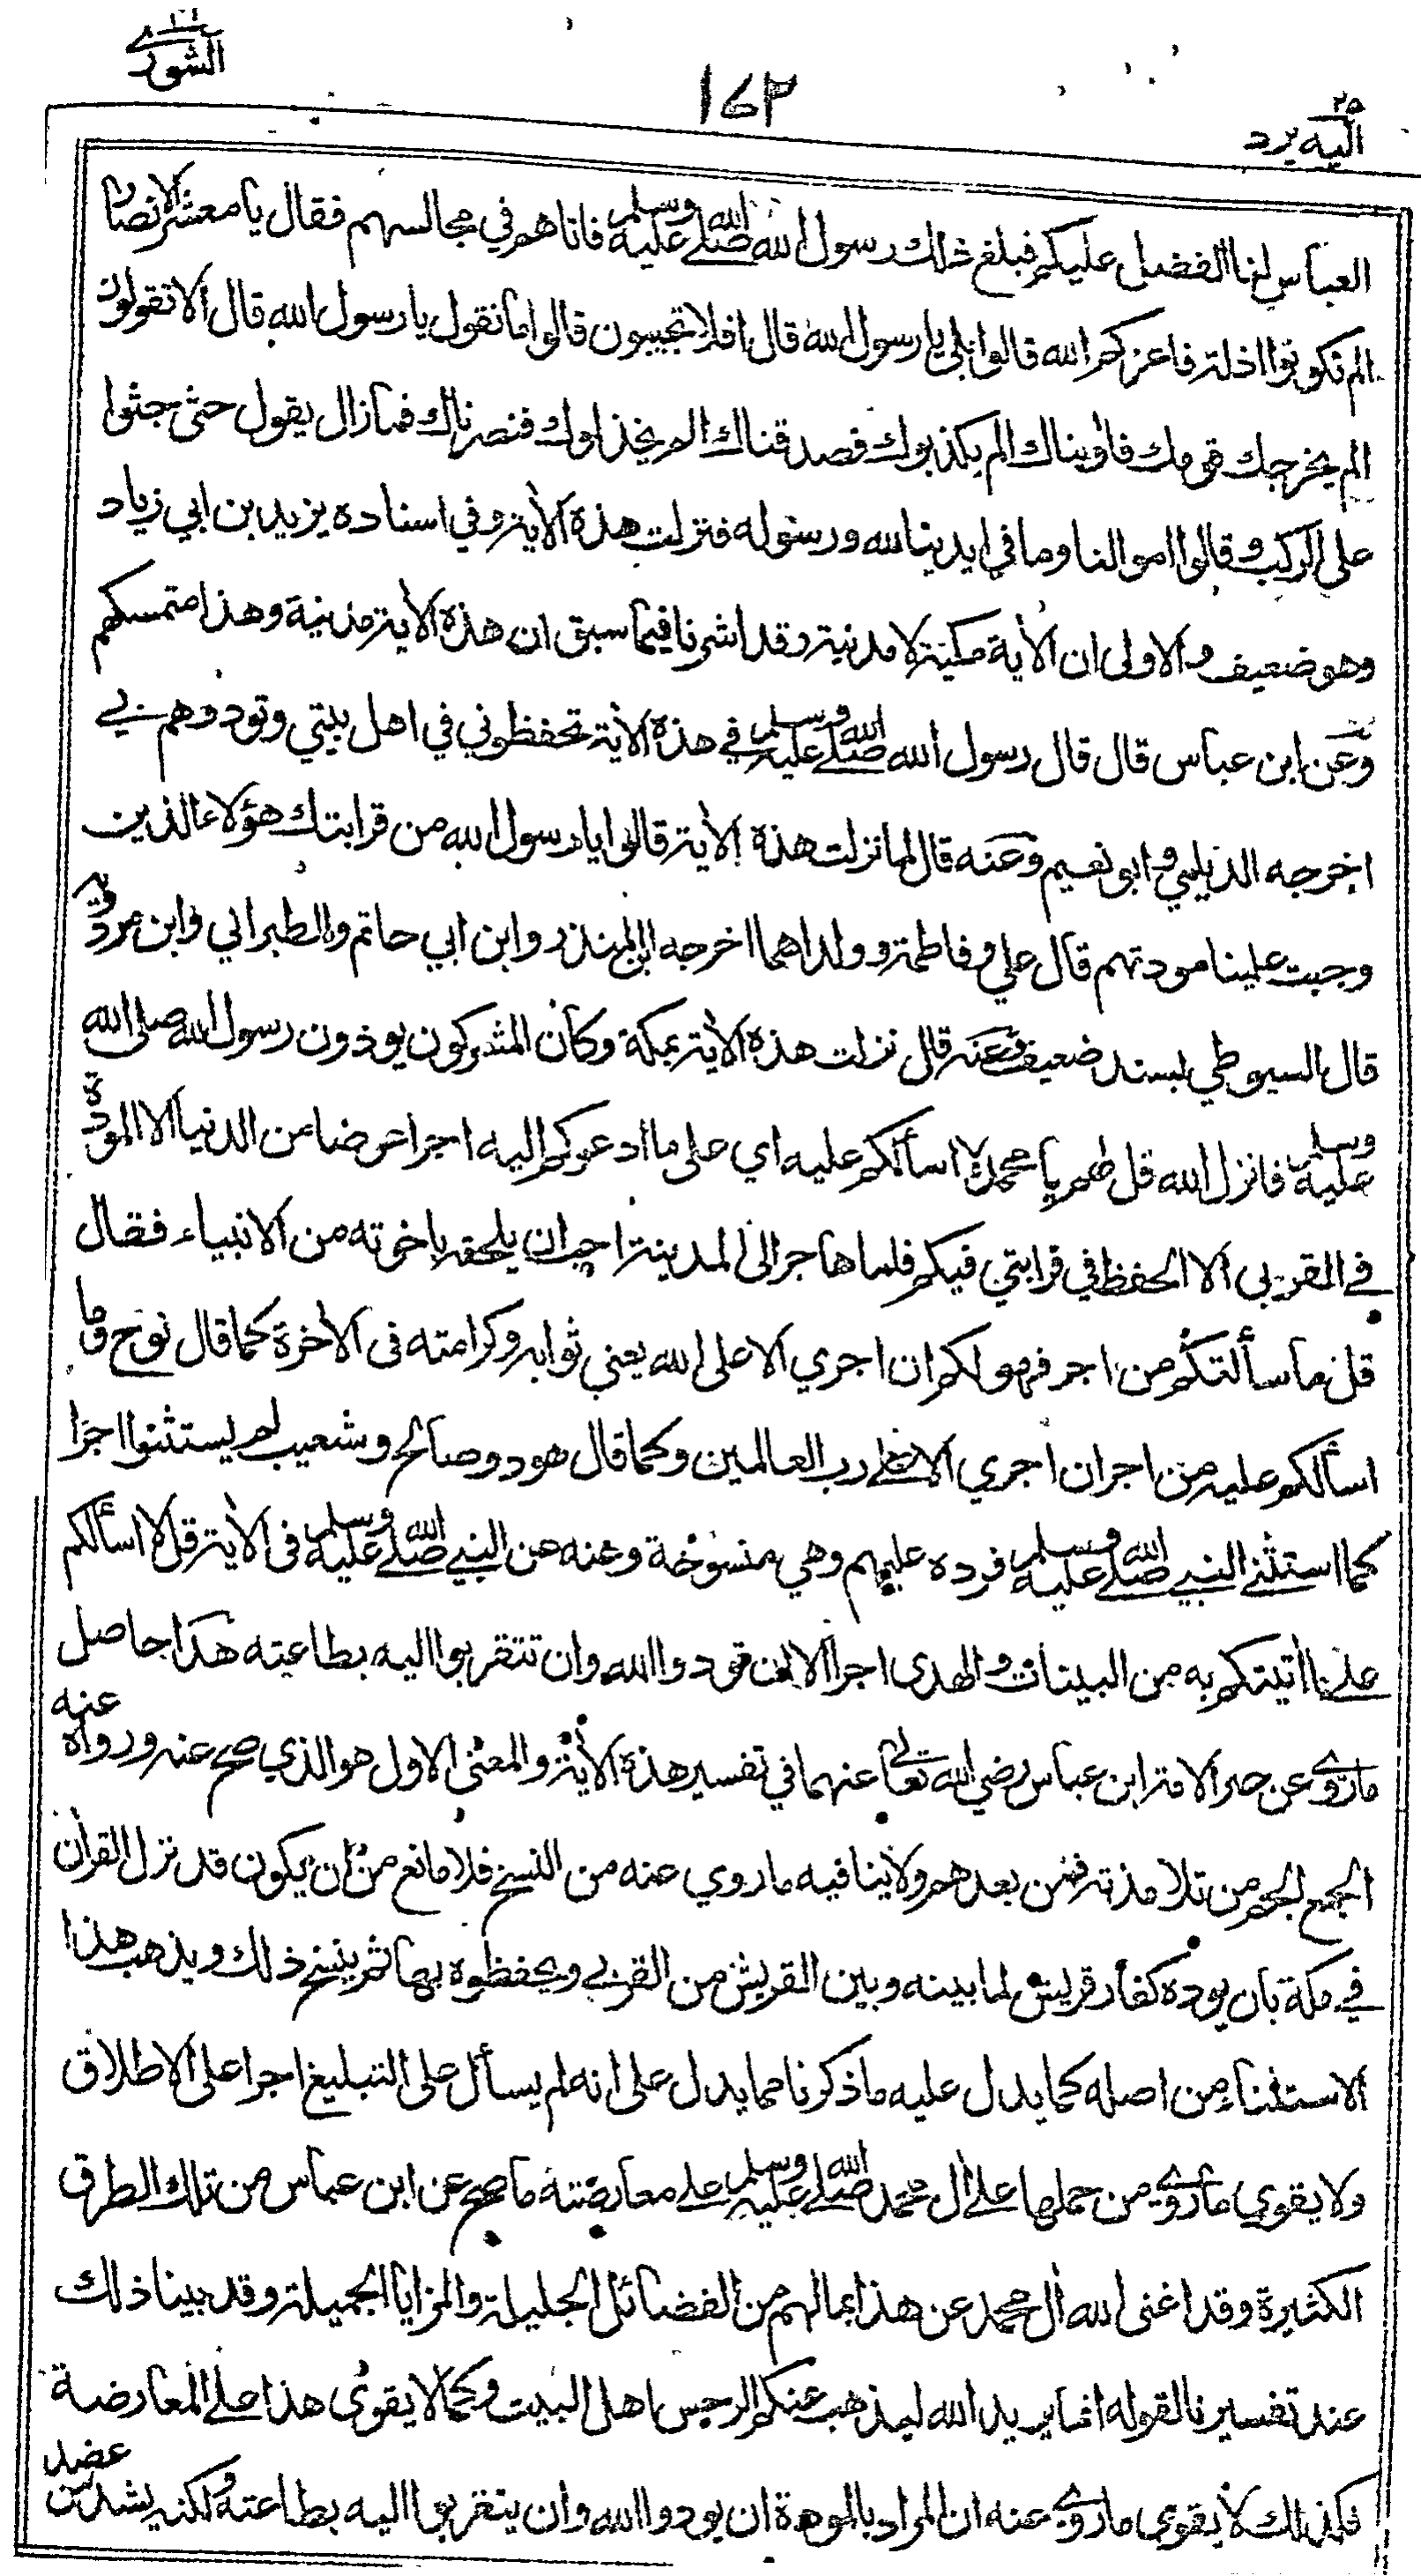 الشورى ٤٢
١٧٢
اليه يرد ٢٥
العباس لنا الفضل عليكم فبلغ ذلك رسول الله صلى الله عليه وسلم فاتاهم في مجالسهم فقال يا معشر الانصار
الم تكونوا اذلة فاعزكم الله قالوا بلى يا رسول الله قال افلا تجيبون قالوا ما نقول يا رسول الله قال الا تقولون
الم يخرجك قومك فآويناك الم يكذبوك فصدقناك الم يخذلوك فنصرناك فما زال يقول حتى جثوا
على الركب وقالوا اموالنا وما في ايدينا لله ورسوله فنزلت هذه الآية وفي اسناده يزيد بن ابي زياد
وهو ضعيف والاولى ان الآية مكية لا مدنية وقد اشرنا فيما سبق ان هذه الآية مدنية وهذا متمسكهم
وعن ابن عباس قال قال رسول الله صلى الله عليه وسلم في هذه الآية تحفظوني في اهل بيتي وتودوهم بي
اخرجه الديلمي وابو نعيم وعنه قال لما نزلت هذه الآية قالوا يا رسول الله من قرابتك هؤلاء الذين
وجبت علينا مودتهم قال علي وفاطمة وولداهما اخرجه ابن المنذر وابن ابي حاتم والطبراني وابن مردويه
قال السيوطي بسند ضعيف وعنه قال نزلت هذه الآية بمكة وكان المشركون يوذون رسول الله صلى الله
عليه وسلم فانزل الله قل لهم يا محمد لا اسألكم عليه اي على ما ادعوكم اليه اجرا عوضا من الدنيا الا المودة
في القربى الا الحفظ في قرابتي فيكم فلما هاجر الى المدينة احب ان يلحقه باخوته من الانبياء فقال
قل ما سألتكم من اجر فهو لكم ان اجري الا على الله يعني ثوابه وكرامته في الآخرة كما قال نوح وما
اسألكم عليه من اجر ان اجري الا على رب العالمين وكما قال هود وصالح وشعيب لم يستثنوا اجرا
كما استثنى النبي صلى الله عليه وسلم فرده عليهم وهي منسوخة وعنه عن النبي صلى الله عليه وسلم في الآية قل لا اسألكم
على ما اتيتكم به من البينات والهدى اجرا الا ان تودوا الله وان تتقربوا اليه بطاعته هذا حاصل
ما روي عن حبر الامة ابن عباس رضي الله تعالى عنهما في تفسير هذه الآية والمعنى الاول هو الذي صح عنه ورواه عنه
الجمع الجم من تلامذته فمن بعدهم ولا ينافيه ما روي عنه من النسخ فلا مانع من ان يكون قد نزل القرآن
في مكة بان يوده كفار قريش لما بينه وبين القريش من القربى ويحفظوه بها ثم ينسخ ذلك ويذهب هذا
الاستثناء من اصله كما يدل عليه ما ذكرنا مما يدل على انه لم يسأل على التبليغ اجرا على الاطلاق
ولا يقوى ما روي من حملها على آل محمد صلى الله عليه وسلم على معارضته ما صح عن ابن عباس من تلك الطرق
الكثيرة وقد اغنى الله آل محمد عن هذا بما لهم من الفضائل الجليلة والمزايا الجميلة وقد بينا ذلك
عند تفسيرنا لقوله انما يريد الله ليذهب عنكم الرجس اهل البيت وكما لا يقوى هذا على المعارضة
فكذلك لا يقوى ما روي عنه ان المراد بالمودة ان يودوا الله وان يتقربوا اليه بطاعته ولكنه يشد من عضد